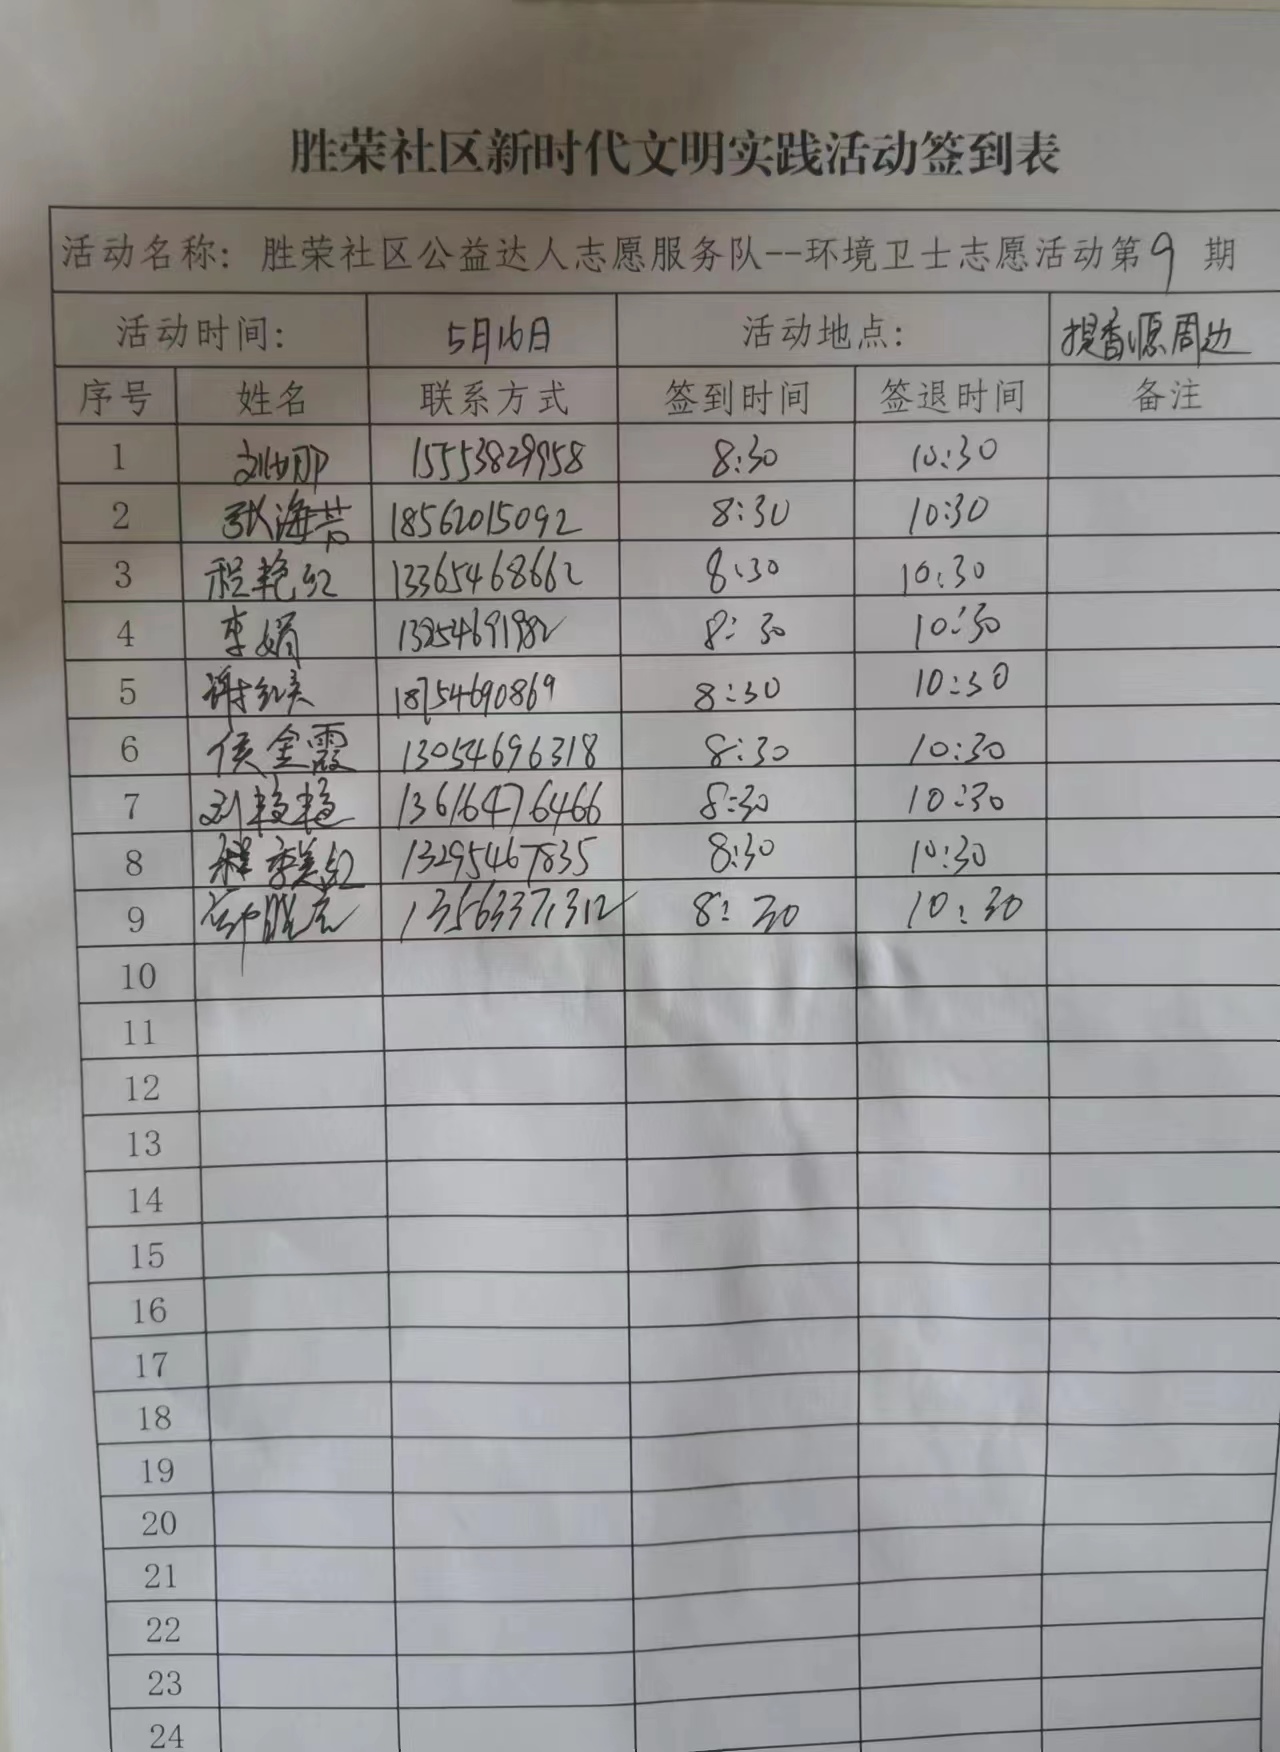 胜荣社区新时代文明实践活动签到表
活动名称：胜荣社区公益达人志愿服务队--环境卫士志愿活动第9期
活动时间： 5月16日 活动地点： 提香源周边
序号 姓名 联系方式 签到时间 签退时间 备注
1 刘娜 15553829958 8:30 10:30
2 张海芳 18562015092 8:30 10:30
3 程艳红 13365468662 8:30 10:30
4 李娟 13254691982 8:30 10:30
5 谢红英 18754690869 8:30 10:30
6 侯金霞 13054696318 8:30 10:30
7 刘艳艳 13616476466 8:30 10:30
8 李美红 13295467835 8:30 10:30
9 13563371312 8:30 10:30
10
11
12
13
14
15
16
17
18
19
20
21
22
23
24